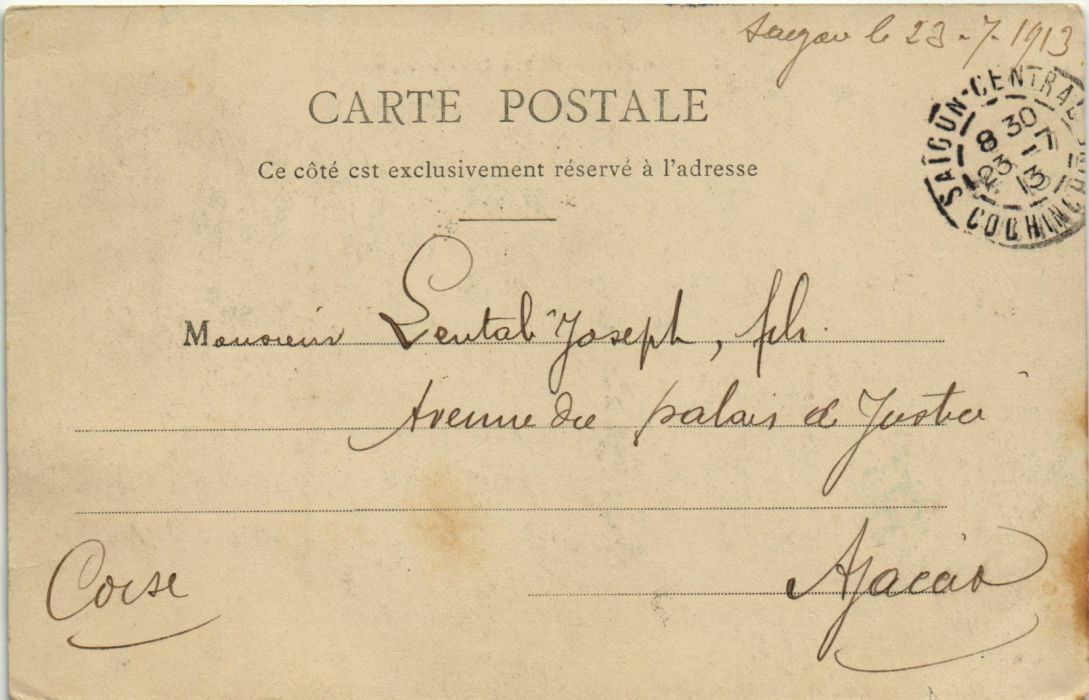 Saigon le 23-7-1913
CARTE POSTALE
Ce côté est exclusivement réservé à l'adresse
SAÏGON-CENTRAL
8 30
23 -7
13
COCHINCHINE
Monsieur Lental Joseph, fils
Avenue du palais de Justice
Corse
Ajaccio